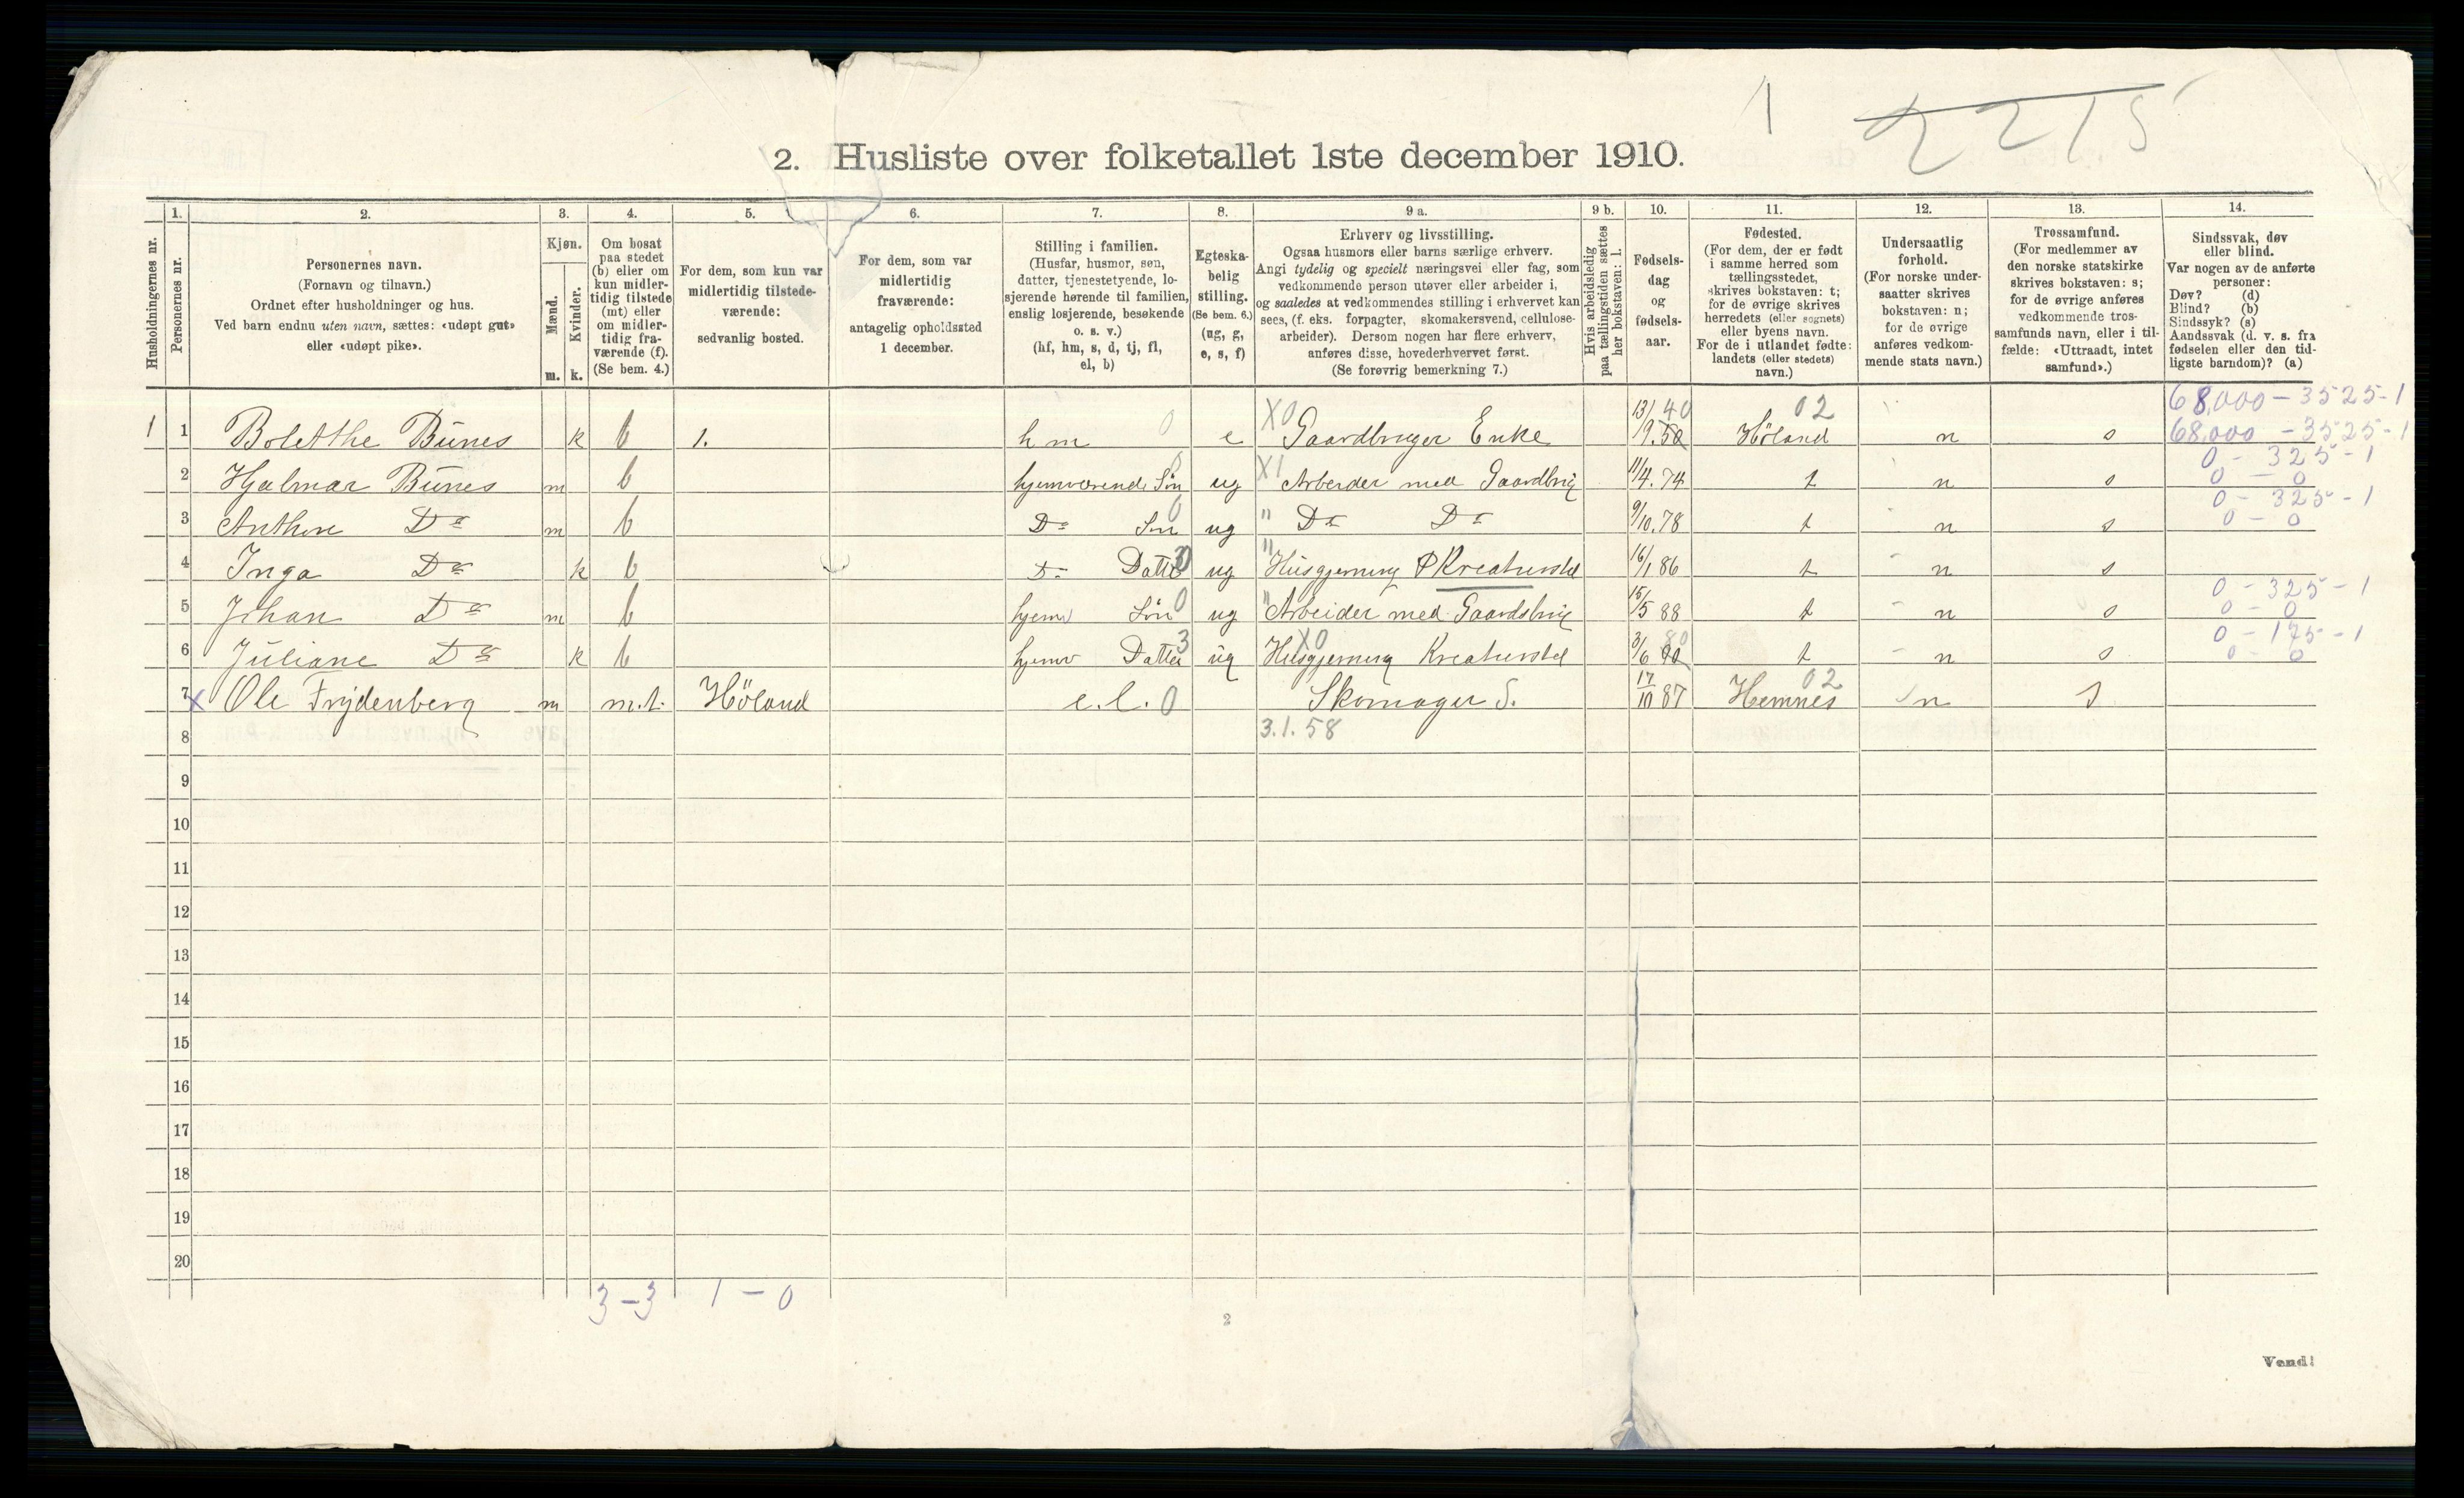 1 2215
2. Husliste over folketallet 1ste december 1910.
1. 2. 3. 4. 5. 6. 7. 8. 9 a. 9 b. 10. 11. 12. 13. 14.
Husholdningernes nr.
Personernes nr.
Personernes navn.
(Fornavn og tilnavn.)
Ordnet efter husholdninger og hus.
Ved barn endnu uten navn, sættes: «udøpt gut»
eller «udøpt pike».
Kjøn.
Mænd.
Kvinder.
m. k.
Om bosat
paa stedet
(b) eller om
kun midler-
tidig tilstede
(mt) eller
om midler-
tidig fra-
værende (f).
(Se bem. 4.)
For dem, som kun var
midlertidig tilstede-
værende:
sedvanlig bosted.
For dem, som var
midlertidig
fraværende:
antagelig opholdssted
1 december.
Stilling i familien.
(Husfar, husmor, søn,
datter, tjenestetyende, lo-
sjerende hørende til familien,
enslig losjerende, besøkende
o. s. v.)
(hf, hm, s, d, tj, fl,
el, b)
Egteska-
belig
stilling.
(Se bem. 6.)
(ug, g,
e, s, f)
Erhverv og livsstilling.
Ogsaa husmors eller barns særlige erhverv.
Angi tydelig og specielt næringsvei eller fag, som
vedkommende person utøver eller arbeider i,
og saaledes at vedkommendes stilling i erhvervet kan
sees, (f. eks. forpagter, skomakersvend, cellulose-
arbeider). Dersom nogen har flere erhverv,
anføres disse, hovederhvervet først.
(Se forøvrig bemerkning 7.)
Hvis arbeidsledig
paa tællingstiden sættes
her bokstaven: l.
Fødsels-
dag
og
fødsels-
aar.
Fødested.
(For dem, der er født
i samme herred som
tællingsstedet,
skrives bokstaven: t;
for de øvrige skrives
herredets (eller sognets)
eller byens navn.
For de i utlandet fødte:
landets (eller stedets)
navn.)
Undersaatlig
forhold.
(For norske under-
saatter skrives
bokstaven: n;
for de øvrige
anføres vedkom-
mende stats navn.)
Trossamfund.
(For medlemmer av
den norske statskirke
skrives bokstaven: s;
for de øvrige anføres
vedkommende tros-
samfunds navn, eller i til-
fælde: «Uttraadt, intet
samfund».)
Sindssvak, døv
eller blind.
Var nogen av de anførte
personer:
Døv? (d)
Blind? (b)
Sindssyk? (s)
Aandssvak (d. v. s. fra
fødselen eller den tid-
ligste barndom)? (a)
68,000 - 3525 - 1
1 1 Bolethe Bünes k b 1. hm 0 e X0 Gaardbruger Enke 13/9.50 40 Höland 02 n s 68,000 - 3525 - 1
0 - 325 - 1
2 Hjalmar Bünes m b hjemværende Sön 0 ug X1 Arbeider med Gaardbrug 11/4.74 t n s 0 - 0
0 - 325 - 1
3 Anthon Do m b Do Sön 0 ug " Do Do 9/10.78 t n s 0 - 0
4 Inga Do k b Do Datter 3 ug " Husgjerning & Kreaturstel 16/1 86 t n s
0 - 325 - 1
5 Johan Do m b hjemv Sön 0 ug " Arbeider med Gaardsbrug 15/5 88 t n s 0 - 0
0 - 175 - 1
6 Juliane Do k b hjemv Datter 3 ug X0 Husgjerning Kreaturstel 3/6 90 80 t n s 0 - 0
7 x Ole Frydenberg m m.t. Höland e.l. 0 Skomager S. 17/10 87 Hemnes 02 n s
8 3.1.58
9
10
11
12
13
14
15
16
17
18
19
20
3 - 3 1 - 0
2
Vend!